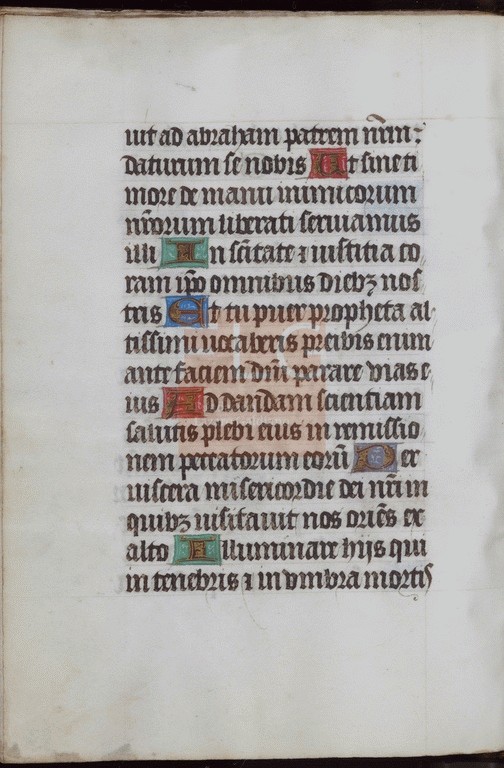 uit ad abraham patrem nr̄m :
daturum se nobis Ut sine ti
more de manu inimicorum
nr̄orum liberati seruiamus
illi In sc̄itate ⁊ iustitia co
ram ip̄o omnibus diebꝫ nos
tris Et tu puer propheta al
tissimi uocaberis preibis enim
ante faciem dn̄i parare vias e
ius Ad dandam scientiam
salutis plebi eius in remissio
nem peccatorum eorū Per
uiscera misericordie dei nr̄i in
quibꝫ uisitauit nos oriēs ex
alto Illuminare hijs qui
in tenebris ⁊ in vmbra mortis